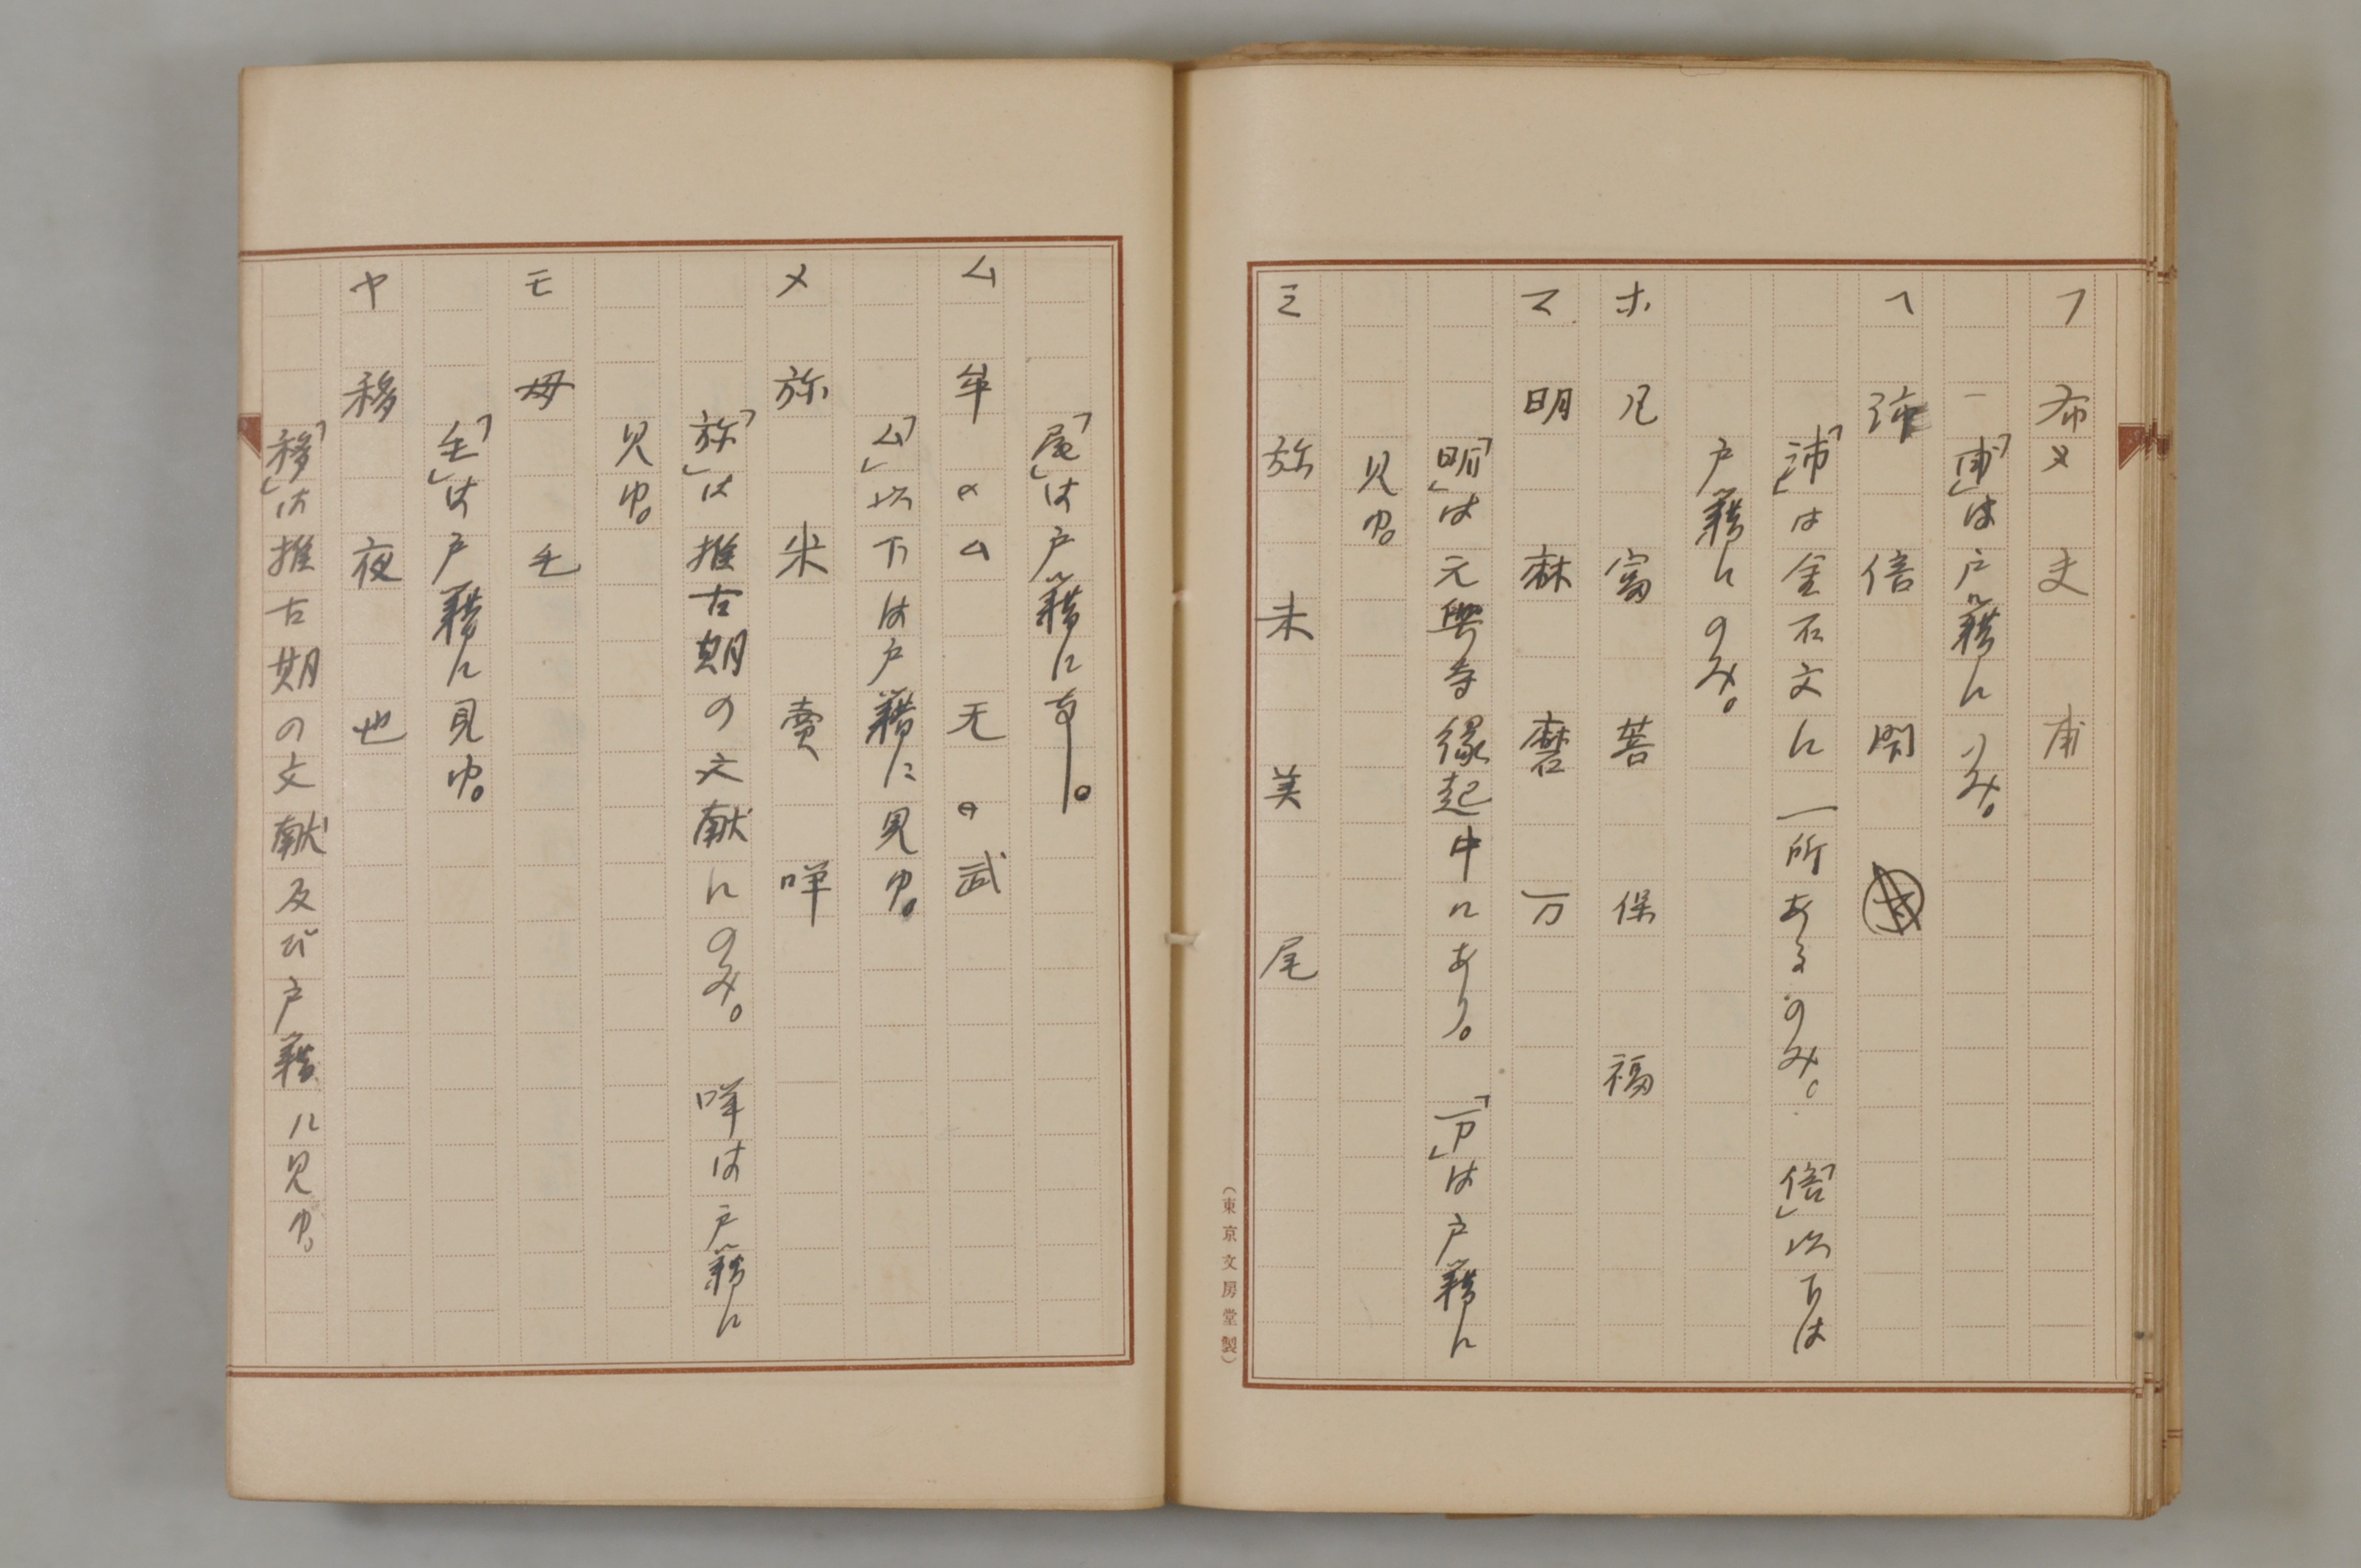 フ 布 又 夫 甫
「甫」は戸籍にのみ。
ヘ 沛 倍 閇
「沛」は金石文に一所あるのみ。「倍」以下は
戸籍にのみ。
ホ 凡 富 菩 保 福
マ 明 麻 磨 万
「明」は元興寺縁起中にあり。「万」は戸籍に
見ゆ。
ミ 弥 未 美 尾
(東京文房堂製)
「尾」は戸籍に
ム 牟 ム 无 武
「ム」以下は戸籍に見ゆ。
メ 弥 米 賣 咩
「弥」は推古期の文献にのみ。 咩は戸籍に
見ゆ。
モ 母 毛
「毛」は戸籍に見ゆ。
ヤ 移 夜 也
「移」は推古期の文献及び戸籍に見ゆ。